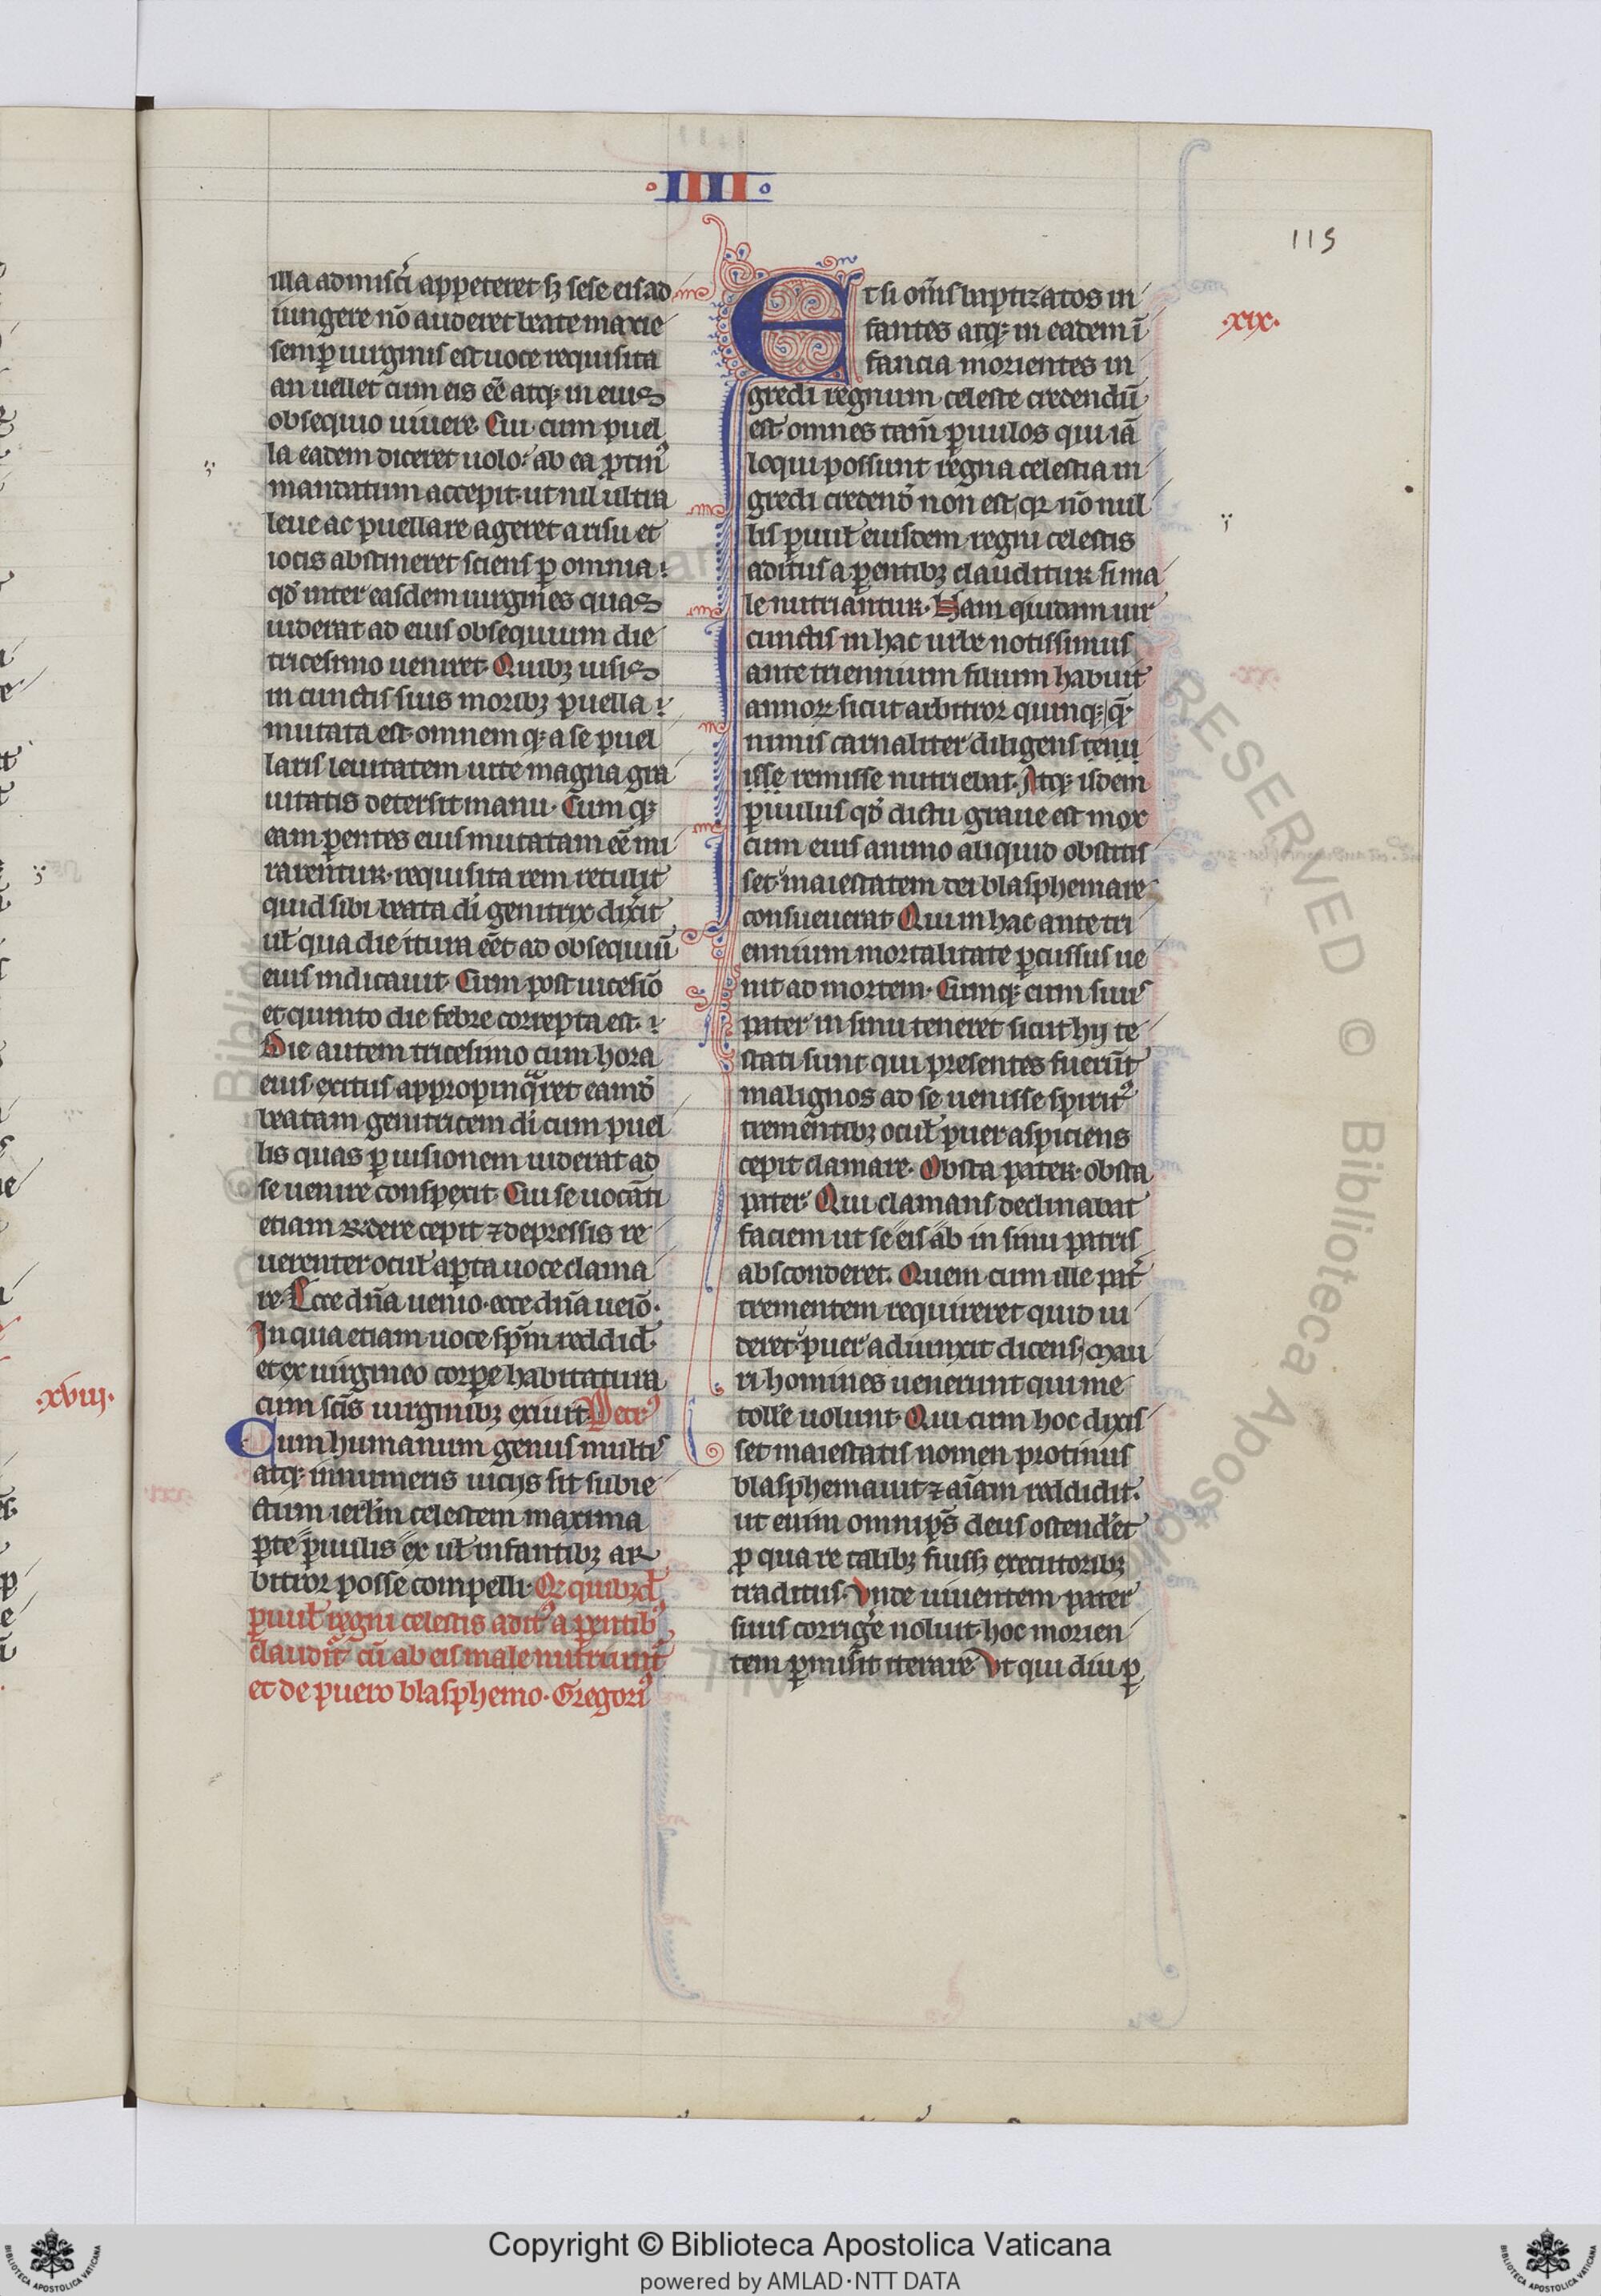 ·IIII·
115
illa admisci appeteret sꝫ sese eis ad
iungere nō auderet beate marie
semꝑ uirginis est uoce requisita
an uellet cum eis eē atqꝫ in eius
obsequio uiuere. Cui cum puel
la eadem diceret uolo: ab ea ꝓtin᷒
mandatum accepit. ut nil ultra
leue ac puellare ageret a risu et
iocis abstineret sciens ꝑ omnia:
qd̄ inter easdem uirgines quas
uiderat ad eius obsequium die
tricesimo ueniret. Quibꝫ uisis
in cunctis suis moribꝫ puella:
mutata est. omnemqꝫ a se puel
laris leuitatem uite magna gra
uitatis detersit manu. Cumqꝫ
eam ꝑentes eius mutatam eē mi
rarentur. requisita rem retulit
quid sibi beata di genitrix dixit
ul̄ qua die itura eēt ad obsequiū
eius indicauit. Cum post uicesiō
et quinto die febre correpta est.:
Die autem tricesimo cum hora
eius exitus appropinqͣret eand̄
beatam genitricem di cum puel
lis quas ꝑ uisionem uiderat ad
se uenire conspexit. Cui se uocāti
etiam rn̄dere cepit ⁊ depressis re
uerenter ocul̄ aꝑta uoce clama
re. Ecce dn̄a uenio. ecce dn̄a ueīo.
In qua etiam uoce spm̄ reddid̄.
et ex uirgineo corꝑe habitatura
cum scīs uirginibꝫ exiuit. Petr᷒
xviii.
Cum humanum genus multis
atqꝫ innumeris uiciis sit subie
ctum ierl̄m celestem maxima
ꝑte ꝑuulis ex ul̄ infantibꝫ ar
bitror posse compelli. Qꝛ quibꝫd̄
ꝑuul̄ regni celestis adit᷒ a ꝑentib᷒
claudit᷑ cū ab eis male nutriunt᷑
et de puero blasphemo. Gregori᷒
.xix.
Et si om̄s baptizatos in
fantes atqꝫ in eadem ī
fancia morientes in
gredi regnum celeste credendū
est. omnes tam̄ ꝑuulos qui iā
loqui possunt regna celestia in
gredi credend̄ non est, qꝛ nō nul
lis ꝑuul̄ eiusdem regni celestis
aditus a ꝑentibꝫ clauditur si ma
le nutriantur. Nam quidam uir
cunctis in hac urbe notissimus
ante triennium filium habuit
annoꝝ sicut arbitror quinqꝫ. qͫ
nimis carnaliter diligens tenu
isse remisse nutriebat. Atqꝫ isdem
ꝑuulus qd̄ dictu graue est mox
cum eius animo aliquid obstitis
set maiestatem dei blasphemare
consueuerat. Qui in hac ante tri
ennium mortalitate ꝑcussus ue
nit ad mortem. Cumqꝫ eum suus
pater in sinu teneret sicut hii te
stati sunt qui presentes fuerūt
malignos ad se uenisse spirit᷒
trementibꝫ ocul̄ puer aspiciens
cepit clamare. Obsta pater. obsta
pater. Qui clamans declinabat
faciem ut se eis ab in sinu patris
absconderet. Quem cum ille pat̄
trementem requireret quid ui
deret. puer adiunxit dicens, Mau
ri homines uenerunt qui me
tolle uolunt. Qui cum hoc dixis
set maiestatis nomen protinus
blasphemauit ⁊ aīam reddidit.
ut enim omnip̄s deus ostend̄et
ꝓ qua re talibꝫ fuissꝫ executoribꝫ
traditus. Vnde uiuentem pater
suus corriḡe noluit. hoc morien
tem ꝑmisit iterare. Vt qui diu ꝑ
Copyright © Biblioteca Apostolica Vaticana
powered by AMLAD·NTT DATA